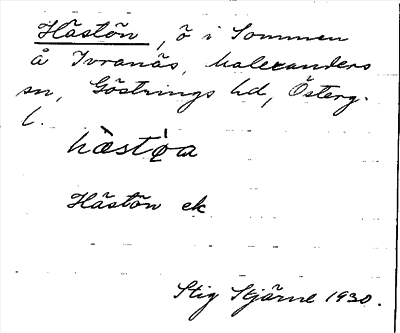 Hästön, ö i Sommen
å Ivranäs, Malexanders
sn, Göstrings hd, Österg.
l.
hàstø̀a
Hästön ek
Stig Stjärne 1930.